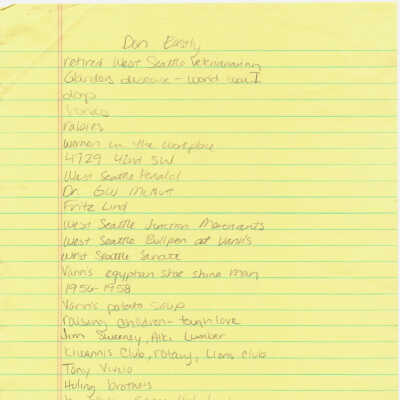 Don Eastly
retired West Seattle Veterinarian
Glanders disease - World War I
dogs
horses
rabies
women in the workplace
4729 42nd SW
West Seattle Herald
Dr. GW McNutt
Fritz Lind
West Seattle Junction Merchants
West Seattle Bullpen at Vann's
West Seattle Senate
Vann's egyptian shoe shine man
1956-1958
Vann's potato soup
raising children - tough love
Jim Sweeney, Alki Lumber
Kiwannis Club, rotary, Lions club
Tony
Huling brothers